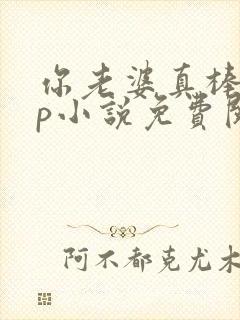 你老婆真棒
p小說免費
阿不都克尤木